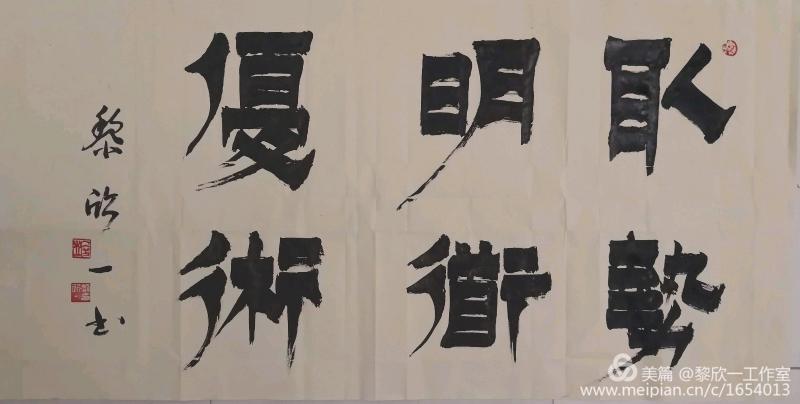 取勢
明衜
優術
黎欣一书
美篇 @黎欣一工作室
www.meipian.cn/c/1654013